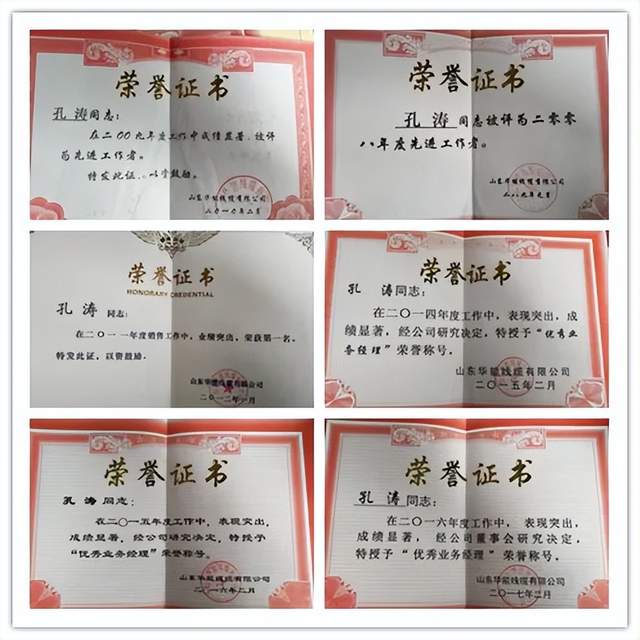 荣誉证书
孔涛同志：
在二00九年度工作中成绩显著，被评
为先进工作者。
特发此证，以资鼓励。
山东华能线缆有限公司
二〇一〇年二月
荣誉证书
孔涛同志被评为二零零
八年度先进工作者。
山东华能线缆有限公司
二〇〇九年元月
荣誉证书
HONORARY CREDENTIAL
孔涛同志：
在二〇一一年度销售工作中，业绩突出，荣获第一名。
特发此证，以资鼓励。
山东华能线缆有限公司
二〇一二年一月
荣誉证书
孔涛同志：
在二〇一四年度工作中，表现突出，成
绩显著，经公司研究决定，特授予“优秀业
务经理”荣誉称号。
山东华能线缆有限公司
二〇一五年二月
荣誉证书
孔涛同志：
在二〇一五年度工作中，表现突出，
成绩显著，经公司研究决定，特授予
“优秀业务经理”荣誉称号。
山东华能线缆有限公司
二〇一六年二月
荣誉证书
孔涛同志：
在二〇一六年度工作中，表现突出，
成绩显著，经公司董事会研究决定，
特授予“优秀业务经理”荣誉称号。
山东华能线缆有限公司
二〇一七年二月